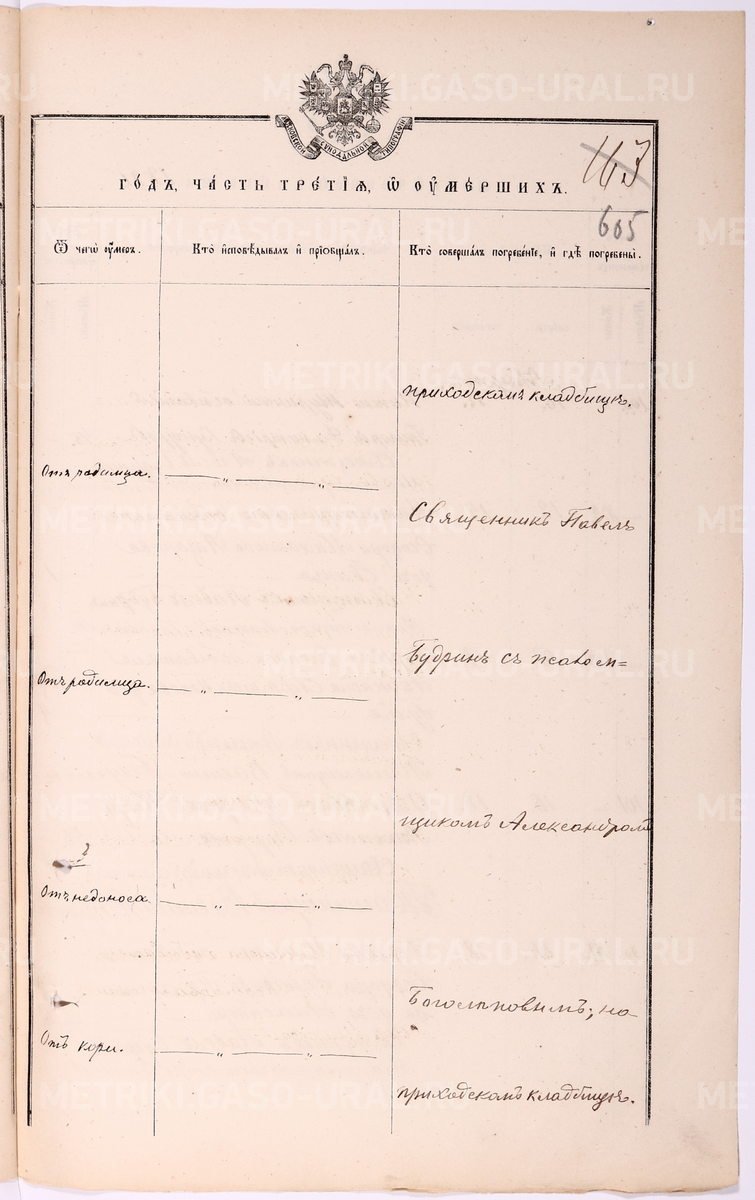 METRIKI.GASO-URAL.RU
МОСКОВСКОЙ СѴНОДАЛЬНОЙ ТИПОГРАФІИ
163
ГО́ДЪ, ЧА́СТЬ ТРЕ́ТІѦ, Ѡ҆ ОУ҆МЕ́РШИХЪ.
605
Ѿ чегѡ̀ оу҆́меръ.
Кто̀ и҆сповѣ́дывалъ и҆ прїѡбща́лъ.
Кто̀ соверша́лъ погребе́нїе, и҆ гдѣ̀ погребены̀.
приходскомъ кладбищѣ.
Отъ родимца. — „ — „ —
Священникъ Павелъ
Будринъ съ псалом=
Отъ родимца. — „ — „ —
щикомъ Александромъ
Отъ недоноса. — „ — „ —
Боголѣповымъ; на
Отъ кори. — „ — „ —
приходскомъ кладбищѣ.